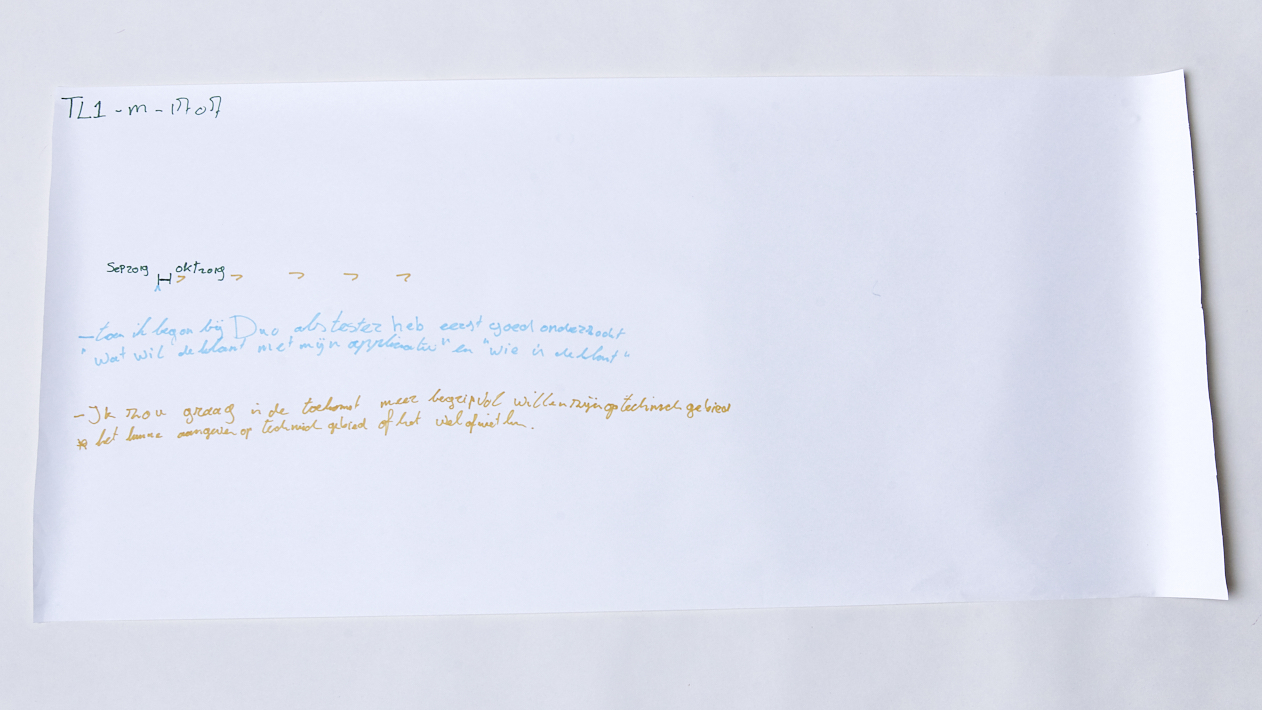 TL1 - m - 1707
Sep2019 okt2019
- toen ik begon bij Duo als tester heb eerst goed onderzocht
"wat wil de klant met mijn applicatie" en "wie is de klant"
- Ik zou graag in de toekomst meer begripvol willen zijn op technisch gebied
* het kunnen aangeven op technisch gebied of het wel of niet kan.